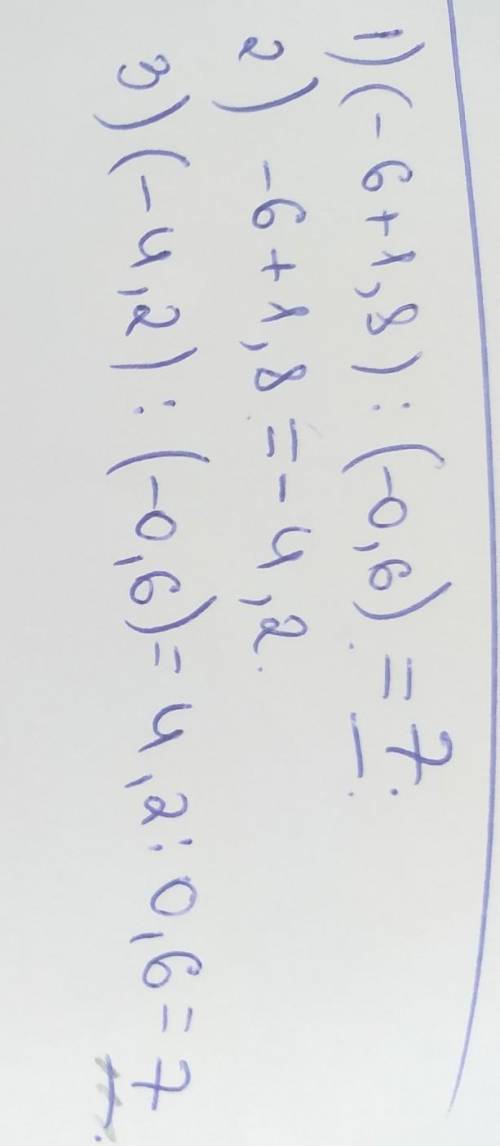 1) (-6+1,8):(-0,6)=7.
2) -6+1,8=-4,2.
3) (-4,2):(-0,6)=4,2:0,6=7.